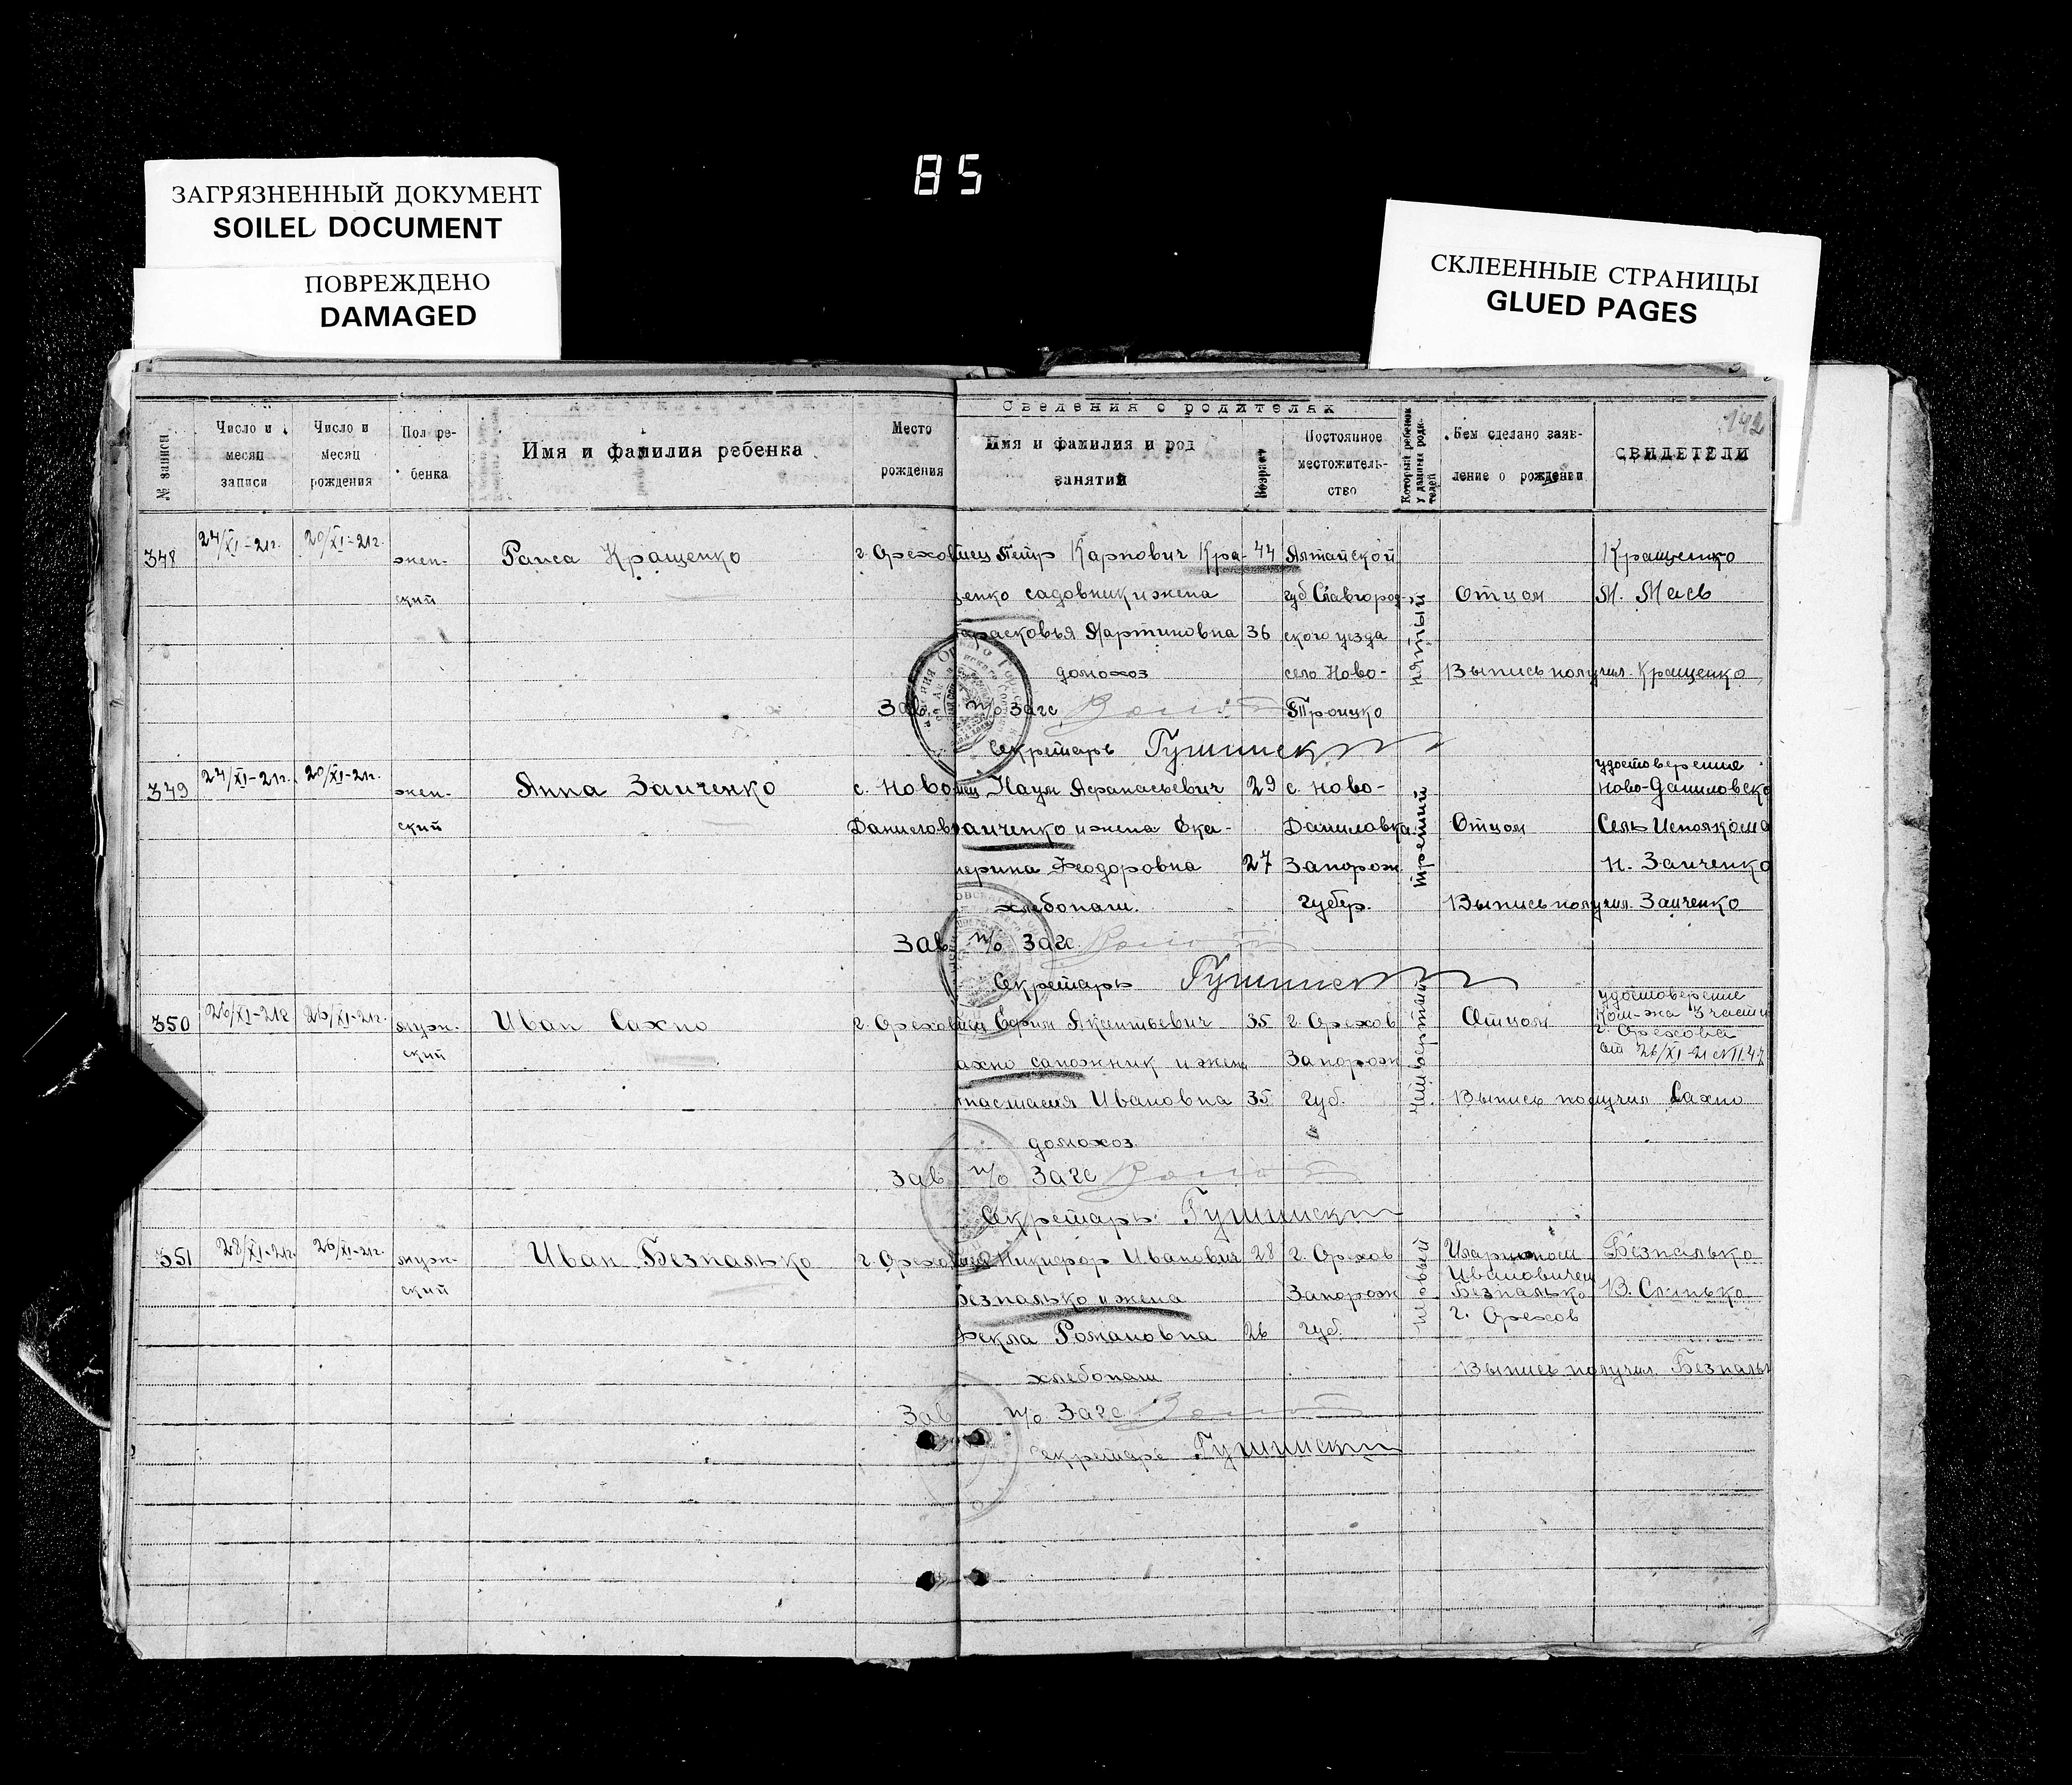 85
ЗАГРЯЗНЕННЫЙ ДОКУМЕНТ
SOILED DOCUMENT
ПОВРЕЖДЕНО
DAMAGED
СКЛЕЕННЫЕ СТРАНИЦЫ
GLUED PAGES
142
Сведения о родителях
№ записи
Число и месяц записи
Число и месяц рождения
Пол ребенка
Имя и фамилия ребенка
Место рождения
Имя и фамилия и род занятий
Возраст
Постоянное местожительство
Который ребенок у данных родителей
Кем сделано заявление о рождении
СВИДЕТЕЛИ
348 24/XI-21г. 20/XI-21г. жен- Раиса Кращенко г. Орехов Петр Карпович Кра- 44 Алтайской Кращенко
ский щенко садовник и жена губ Славгород- пятый Отцом
Мартиновна 36 ского уезда
домохоз село Ново- Выпись получил Кращенко
Зав. п/о Загс Троицко
Секретарь
349 24/XI-21г. 20/XI-21г. жен- Анна Заиченко с. Ново Наум Афанасьевич 29 с. Ново- удостоверение Ново-Даниловско
ский Данилов аиченко и жена Ека- Даниловка третий Отцом Сель Исполкома
терина Феодоровна 27 Запорож Н. Заиченко
хлебопаш. губер. Выпись получил Заиченко
Зав. п/о Загс
Секретарь
350 26/XI-21г 26/XI-21г. муж- Иван Сахно г. Орехов Ефим 35 г. Орехов четвертый Отцом удостоверение
г. Орехова
ский ахно сапожник и жена Запорож от 26/XI-21
настасия Ивановна 35 губ. Выпись получил Сахно
домохоз.
Зав. п/о Загс
Секретарь
351 28/XI-21г. 26/XI-21г. муж- Иван Безпалько г. Орехов Никифор Иванович 28 г. Орехов Безпалько
ский Безпалько и жена Запорож Ивановичем
Безпалько
Фекла Романовна 26 губ. г. Орехов
хлебопаш Выпись получил Безпаль
Зав. п/о Загс
Секретарь